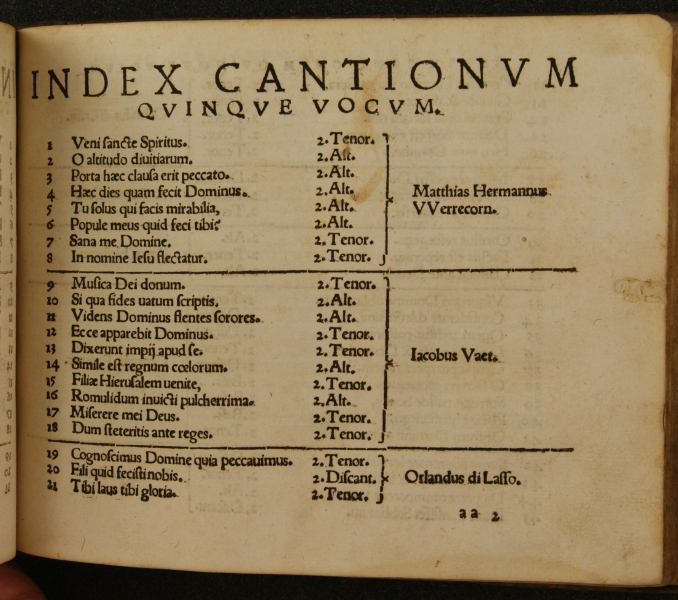 INDEX CANTIONVM
QVINQVE VOCVM.
1 Veni ſancte Spiritus. 2. Tenor.
2 O altitudo diuitiarum. 2. Alt.
3 Porta hæc clauſa erit peccato. 2. Alt.
4 Hæc dies quam fecit Dominus. 2. Alt.
5 Tu ſolus qui facis mirabilia, 2. Alt.
6 Popule meus quid feci tibi? 2. Alt.
7 Sana me Domine. 2. Tenor.
8 In nomine Ieſu flectatur. 2. Tenor.
Matthias Hermannus
VVerrecorn.
9 Muſica Dei donum. 2. Tenor.
10 Si qua fides uatum ſcriptis. 2. Alt.
11 Videns Dominus flentes ſorores. 2. Alt.
12 Ecce apparebit Dominus. 2. Tenor.
13 Dixerunt impij apud ſe. 2. Tenor.
14 Simile eſt regnum cœlorum. 2. Alt.
15 Filiæ Hieruſalem uenite, 2. Tenor.
16 Romulidum inuicti pulcherrima. 2. Alt.
17 Miſerere mei Deus. 2. Tenor.
18 Dum ſteteritis ante reges. 2. Tenor.
Iacobus Vaet.
19 Cognoſcimus Domine quia peccauimus. 2. Tenor.
20 Fili quid feciſti nobis. 2. Diſcant.
21 Tibi laus tibi gloria. 2. Tenor.
Orlandus di Laſſo.
aa 2